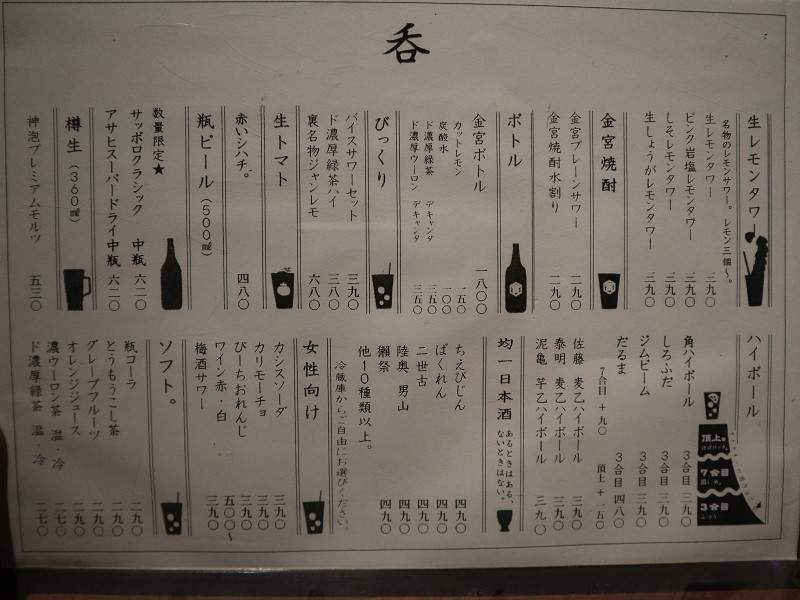 呑
生レモンタワー
名物のレモンサワー。レモン三個〜。
生レモンタワー 三九〇
ピンク岩塩レモンタワー 三九〇
しそレモンタワー 三九〇
生しょうがレモンタワー 三九〇
金宮焼酎
金宮プレーンサワー 二九〇
金宮焼酎水割り 二九〇
ボトル
金宮ボトル 一八〇〇
カットレモン 一五〇
炭酸水 一〇〇
ド濃厚緑茶 デキャンタ 三五〇
ド濃厚ウーロン デキャンタ 三五〇
びっくり
バイスサワーセット 三九〇
ド濃厚緑茶ハイ 三八〇
裏名物ジャンレモ 六八〇
生トマト
赤いシハチ。 四八〇
瓶ビール(500㎖)
数量限定★
サッポロクラシック 中瓶 六二〇
アサヒスーパードライ 中瓶 六二〇
樽生(360㎖)
神泡プレミアムモルツ 五三〇
ハイボール
頂上。
7合目
3合目
角ハイボール 3合目 三九〇
しろふだ 3合目 三九〇
ジムビーム 3合目 三九〇
だるま 3合目 四八〇
7合目 +九〇 頂上 +一五〇
佐藤 麦乙ハイボール 三九〇
泰明 麦乙ハイボール 三九〇
泥亀 芋乙ハイボール 三九〇
均一日本酒
あるときはある、
ないときはない。
ちえびじん 四九〇
ばくれん 四九〇
二世古 四九〇
陸奥 男山 四九〇
獺祭 四九〇
他10種類以上。
冷蔵庫からご自由にお選びください。
女性向け
カシスソーダ 三九〇
カリモーチョ 三九〇
ぴーちおれんじ 三九〇
ワイン赤・白 五〇〇〜
梅酒サワー 三九〇
ソフト。
瓶コーラ 二九〇
とうもろこし茶 二九〇
グレープフルーツ 二九〇
オレンジジュース 二九〇
濃ウーロン茶 温・冷 二七〇
ド濃厚緑茶 温・冷 二七〇